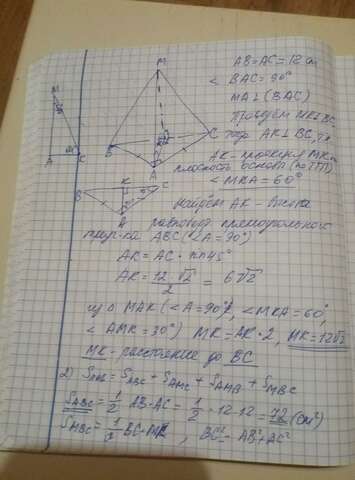 AB=AC=12 см
< BAC=90°
MA⊥(BAC)
Проведём MK⊥BC
тогда AK⊥BC, т.к
AK-проекция MK на
плоскость основ (по ТТП)
< MKA=60°
найдём AK - высота
равнобедр прямоугольного
треуг-ка ABC (<A=90°)
AK=AC·sin45°
AK=12·√2/2=6√2
из △ MAK (<A=90°), <MKA=60°,
< AMK=30°) MK=AK·2, MK=12√2
MK-расстояние до BC
2) S = SABC+SAMC+SAMB+SMBC
SABC=1/2 AB·AC=1/2·12·12=72 (см²)
SMBC=1/2 BC·MK, BC²=AB²+AC²
M
A
C
B
M
B
C
K
A
B
K
C
A